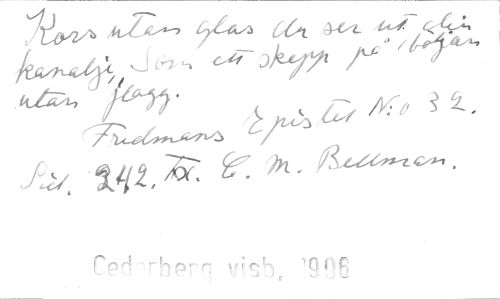 Kors utan glas du ser ut din
kanalje, Som ett skepp på böljan
utan flagg.
Fredmans Epistel N:o 32.
Sid. 242. Tx. C. M. Bellman.
Cederberg visb, 1906